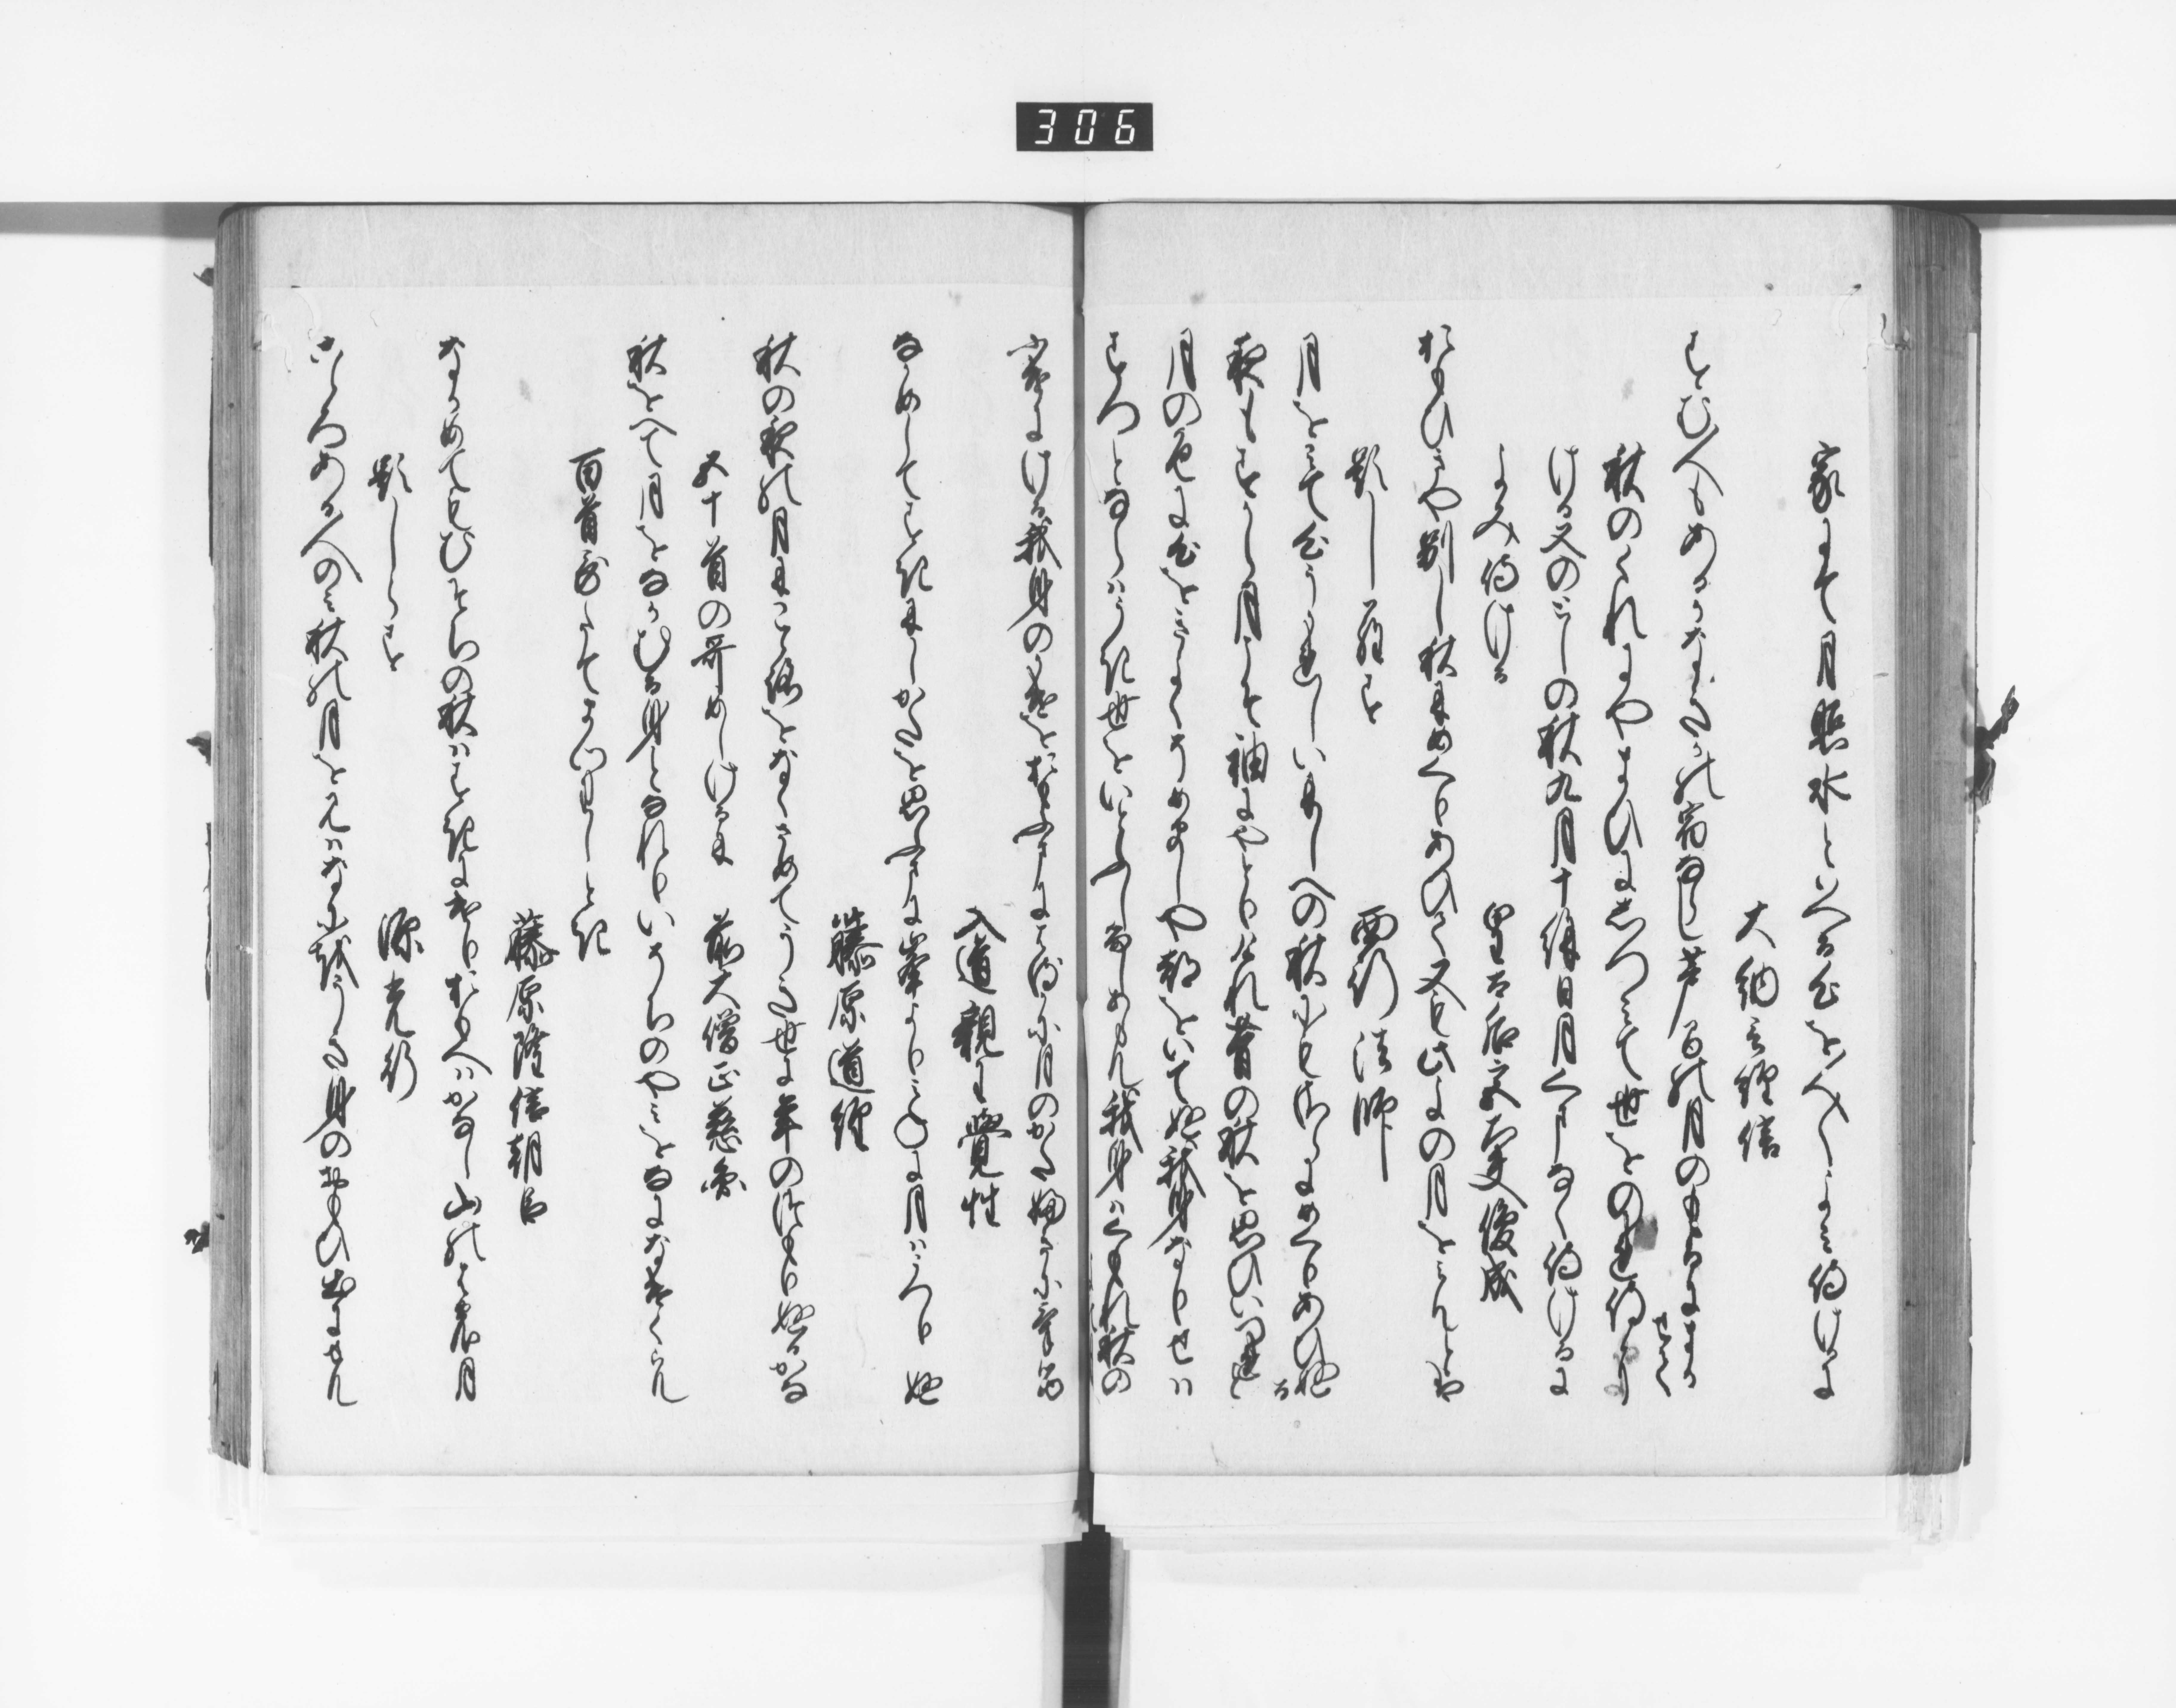 306
家にて月照水といへる心を人〱よみ侍けるに
大納言経信
すむ人もあるかなきかの宿ならし芦まの月のもるにまかせて
秋のくれにやまひにしつみて世をのかれ侍り
ける又のとしの秋九月十余日月くまなく侍けるに
よみ侍ける
皇太后宮大夫俊成
おもひきや別し秋にめくりあひて又も此よの月をみんとは
題しらす
西行法師
月をみて心うかれしいにしへの秋にもさらにめくりあひぬる
夜もすから月こそ袖にやとりけれ昔の秋を思ひいつれは
月の色に心をきよくそめましや都をいてぬ我身なりせは
すつとならはうき世をいとふしるしあらん我身はくもれ秋の
夜の月
ふけにける我身の影をおもふまにはるかに月のかたふきにける
入道親王覚性
なかめしてすきにしかたを思ふまに峯よりみねに月はうつりぬ
藤原道経
秋の夜の月に心をなくさめてうき世に年のつもりぬるかな
五十首の哥めしける時
前大僧正慈円
秋をへて月をなかむる身となれりいそちのやみをなになけくらん
百首哥たてまつりしとき
藤原隆信朝臣
なかめてもむそちの秋はすきにけりおもへはかなし山のはの月
題しらす
源光行
こゝろある人のみ秋の月をみはなにをうき身のおもひ出にせん